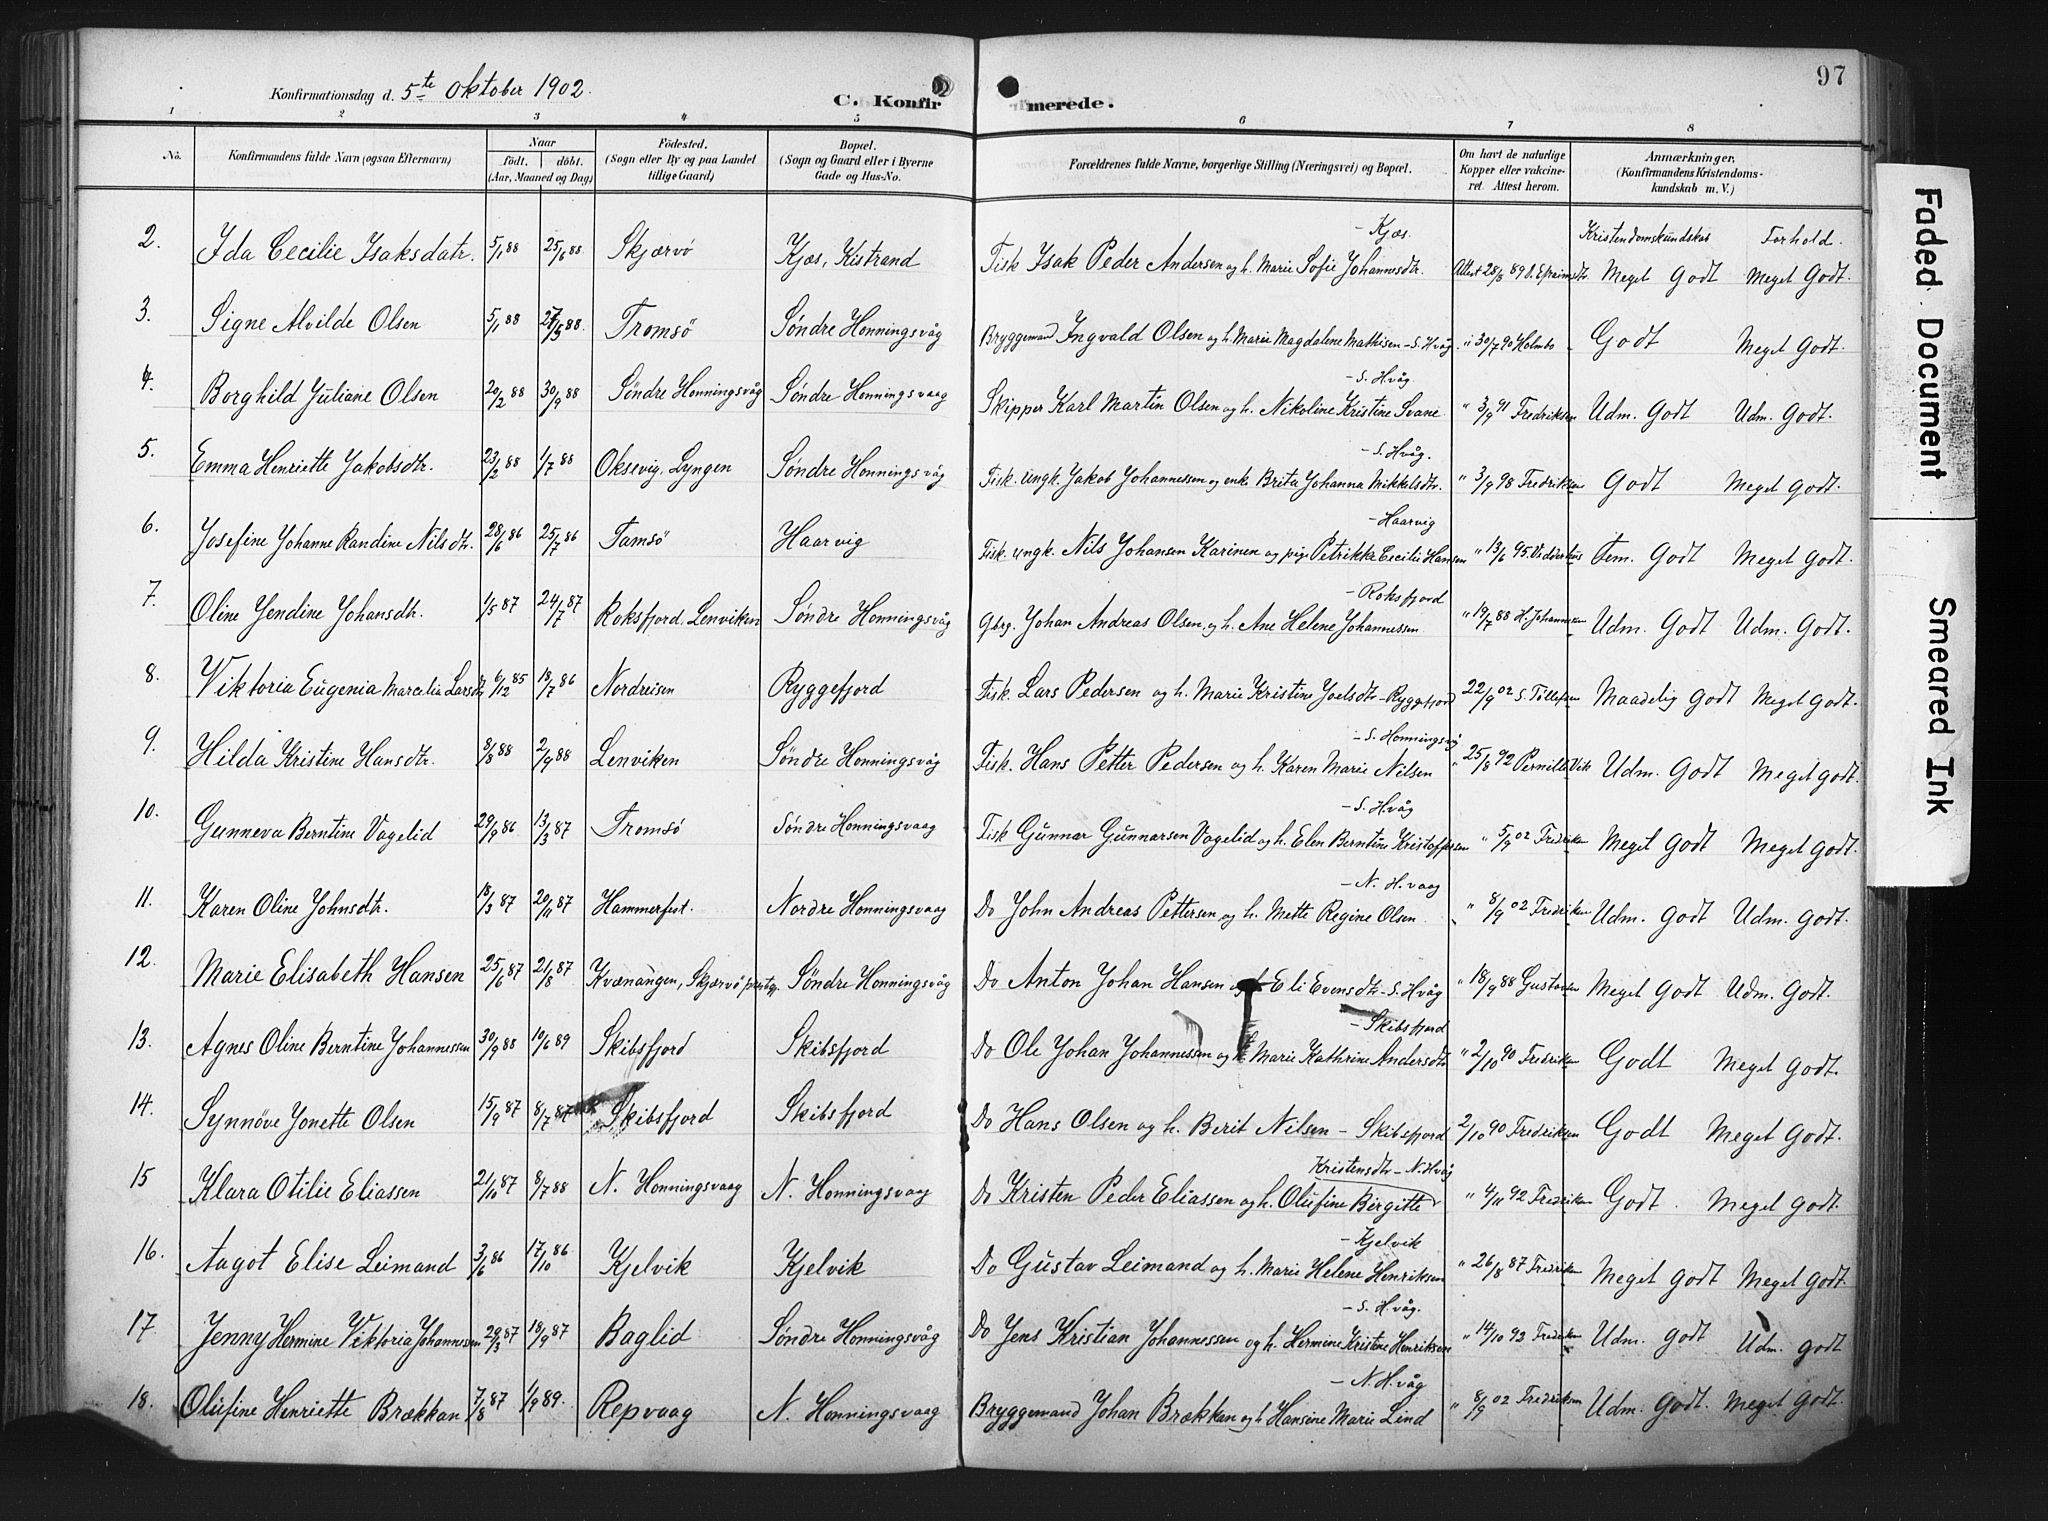 97
Konfirmationsdag d. 5te Oktober 1902.
C. Konfirmerede.
1 2 3 4 5 6 7 8
No.
Konfirmandens fulde Navn (ogsaa Efternavn)
Naar
födt. döbt.
(Aar, Maaned og Dag)
Födested.
(Sogn eller By og paa Landet
tillige Gaard)
Bopæl.
(Sogn og Gaard eller i Byerne
Gade og Hus-No.
Forældrenes fulde Navne, borgerlige Stilling (Næringsvei) og Bopæl.
Om havt de naturlige
Kopper eller vakcine-
ret. Attest herom.
Anmærkninger.
(Konfirmandens Kristendoms-
kundskab m. V.)
Kristendomskundskab Forhold.
- Kjæs.
2. Ida Cecilie Isaksdatr. 5/1 88 25/6 88 Skjærvö Kjæs, Kistrand Fisk Isak Peder Andersen og h. Marie Sofie Johannesdtr. Attest 28/8 89 Meget Godt Meget Godt.
3. Signe Alvilde Olsen 5/1 88 Tromsö Söndre Honningsvåg Bryggemand Ingvald Olsen og h. Marie Magdalene Mathisen - S. Hvåg " 30/7 90 Holmbo Godt Meget Godt.
- S. H.våg.
4. Borghild Juliane Olsen 20/2 88 30/9 88 Söndre Honningsvåg Söndre Honningsvaag Skipper Karl Martin Olsen og h. Nikoline Kristine Svane " 3/9 91 Fredriksen Udm. Godt Udm. Godt.
- S. Hvåg.
5. Emma Henriette Jakobsdtr. 23/2 88 1/7 88 Oksevig, Lyngen Söndre Honningsvåg Fisk. ungk. Jakob Johannessen og enke Brita Johanna Mikkelsdtr. " 3/9 98 Fredriksen Godt Meget Godt.
- Haarvig
6. Josefine Johanne Randine Nilsdtr. 28/6 86 25/7 86 Tamsö Haarvig Fisk. ungk. Nils Johansen Karinen og pig. Petrikke Cecilie Hansen " 13/6 95 Tem. Godt Meget Godt.
- Roksfjord
7. Oline Jendine Johansdtr. 1/5 87 24/7 87 Roksfjord, Lenviken Söndre Honningsvåg Gbrg. Johan Andreas Olsen, og h. Ane Helene Johannessen " 19/7 88 H. Johannesen Udm. Godt Udm. Godt.
8. Viktoria Eugenia Marcelia Larsdtr 6/12 85 18/7 86 Nordreisen Ryggefjord Fisk. Lars Pedersen og h. Marie Kristine Joelsdtr - Ryggefjord 22/9 02 S. Tollefsen Maadelig Godt Meget Godt.
- S. Honningsvåg
9. Hilda Kristine Hansdtr. 8/8 88 2/9 88 Lenviken Söndre Honningsvåg Fisk. Hans Petter Pedersen og h. Karen Marie Nilsen " 25/8 92 Pernille Vik Udm. Godt Meget Godt.
- S. H.våg
10. Gunneva Berntine Vagelid 29/9 86 13/3 87 Tromsö Söndre Honningsvaag Fisk Gunnar Gunnarsen Vagelid og h. Elen Berntine Kristoffersen " 5/9 02 Fredriksen Meget Godt Meget Godt.
- N. H.vaag
11. Karen Oline Johnsdtr. 18/3 87 20/11 87 Hammerfest. Nordre Honningsvaag Do John Andreas Pettersen og h. Mette Regine Olsen " 8/9 02 Fredriksen Udm. Godt Udm. Godt.
12. Marie Elisabeth Hansen 25/6 87 21/8 87 Kvænangen, Skjærvö prestg. Söndre Honningsvåg Do Anton Johan Hansen og h Eli Evensdtr - S. Hvåg " 18/9 88 Gustavsen Meget Godt Udm. Godt.
- Skibsfjord
13. Agnes Oline Berntine Johannessen 30/9 88 19/6 89 Skibsfjord Skibsfjord Do Ole Johan Johannessen og h. Marie Kathrine Andersdtr " 2/10 90 Fredriksen Godt Meget Godt.
14. Synnöve Jonette Olsen 15/9 87 8/7 87 Skibsfjord Skibsfjord Do Hans Olsen og h. Berit Nilsen - Skibsfjord 2/10 90 Fredriksen Godt Meget Godt.
Kristensdtr - N. Hvåg
15 Klara Otilie Eliassen 21/10 87 8/7 88 N. Honningsvaag N. Honningsvaag Do Kristen Peder Eliassen og h. Olufine Birgitte " 4/11 92 Fredriksen Godt. Meget Godt.
- Kjelvik
16. Aagot Elise Leimand 3/6 86 17/10 86. Kjelvik Kjelvik Do Gustav Leimand og h. Marie Helene Henriksen " 26/8 87 Fredriksen Meget Godt Meget Godt.
- S. H.våg.
17. Jenny Hermine Viktoria Johannessen 29/3 87 18/9 87 Baglid Söndre Honningsvåg Do Jens Kristian Johannessen og h. Hermine Kristine Henriksen " 14/10 92 Fredriksen Udm. Godt Udm. Godt
- N. H.våg
18. Olufine Henriette Brækkan 7/8 87 1/9 89. Repvaag N. Honningsvaag Bryggemand Johan Brækkan og h Hansine Marie Lind " 8/9 02 Fredriksen Udm. Godt. Meget Godt.
Faded Document
Smeared Ink